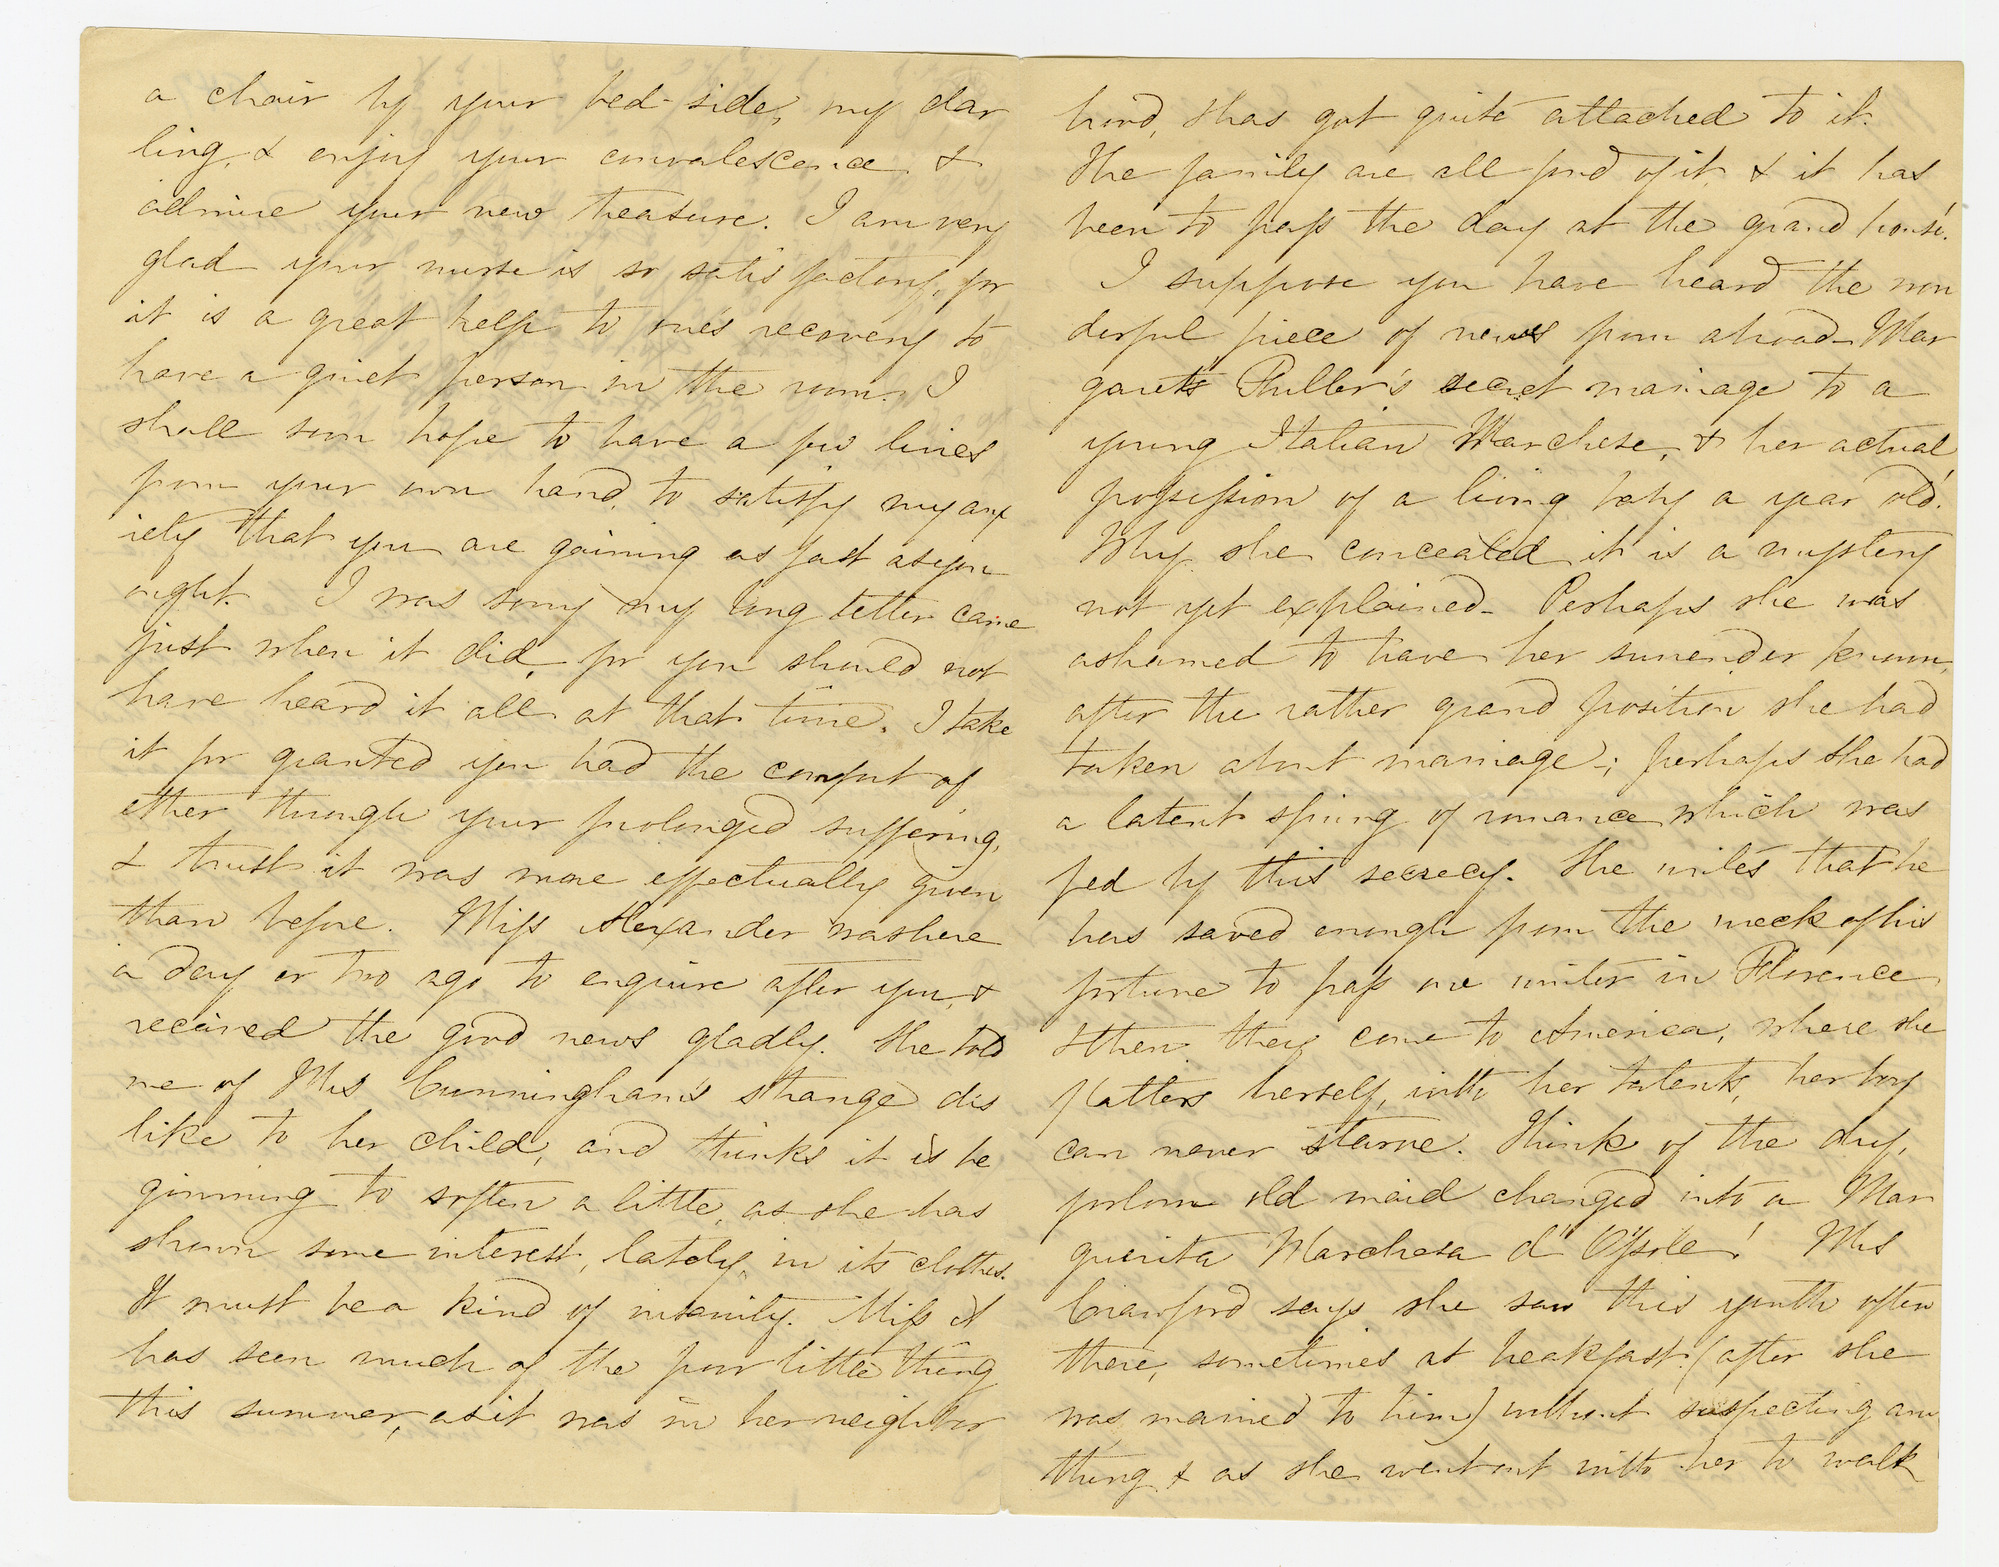 a chair by your bed-side, my dar
ling, & enjoy your convalescence &
admire your new treasure. I am very
glad your nurse is so satisfactory, for
it is a great help to one's recovery to
have a quiet person in the room. I
shall soon hope to have a few lines
from your own hand, to satisfy my anx
iety that you are gaining as fast as you
ought. I was sorry my long letter came
just when it did, for you should not
have heard it all at that time. I take
it for granted you had the comfort of
ether through your prolonged suffering,
& trust it was more effectually given
than before. Miss Alexander was here
a day or two ago to enquire after you, &
received the good news gladly. She told
me of Mrs Cunningham's strange dis
like to her child, and thinks it is be
ginning to soften a little, as she has
shown some interest, lately, in its clothes.
It must be a kind of insanity. Miss A
has seen much of the poor little thing
this summer, as it was in her neighbor
hood, & has got quite attached to it.
The family are all fond of it, & it has
been to pass the day at the grand house!
I suppose you have heard the won
derful piece of news from abroad - Mar
garet's Fuller's secret marriage to a
young Italian Marchese, & her actual
possession of a living baby a year old!
Why she concealed it is a mystery
not yet explained - Perhaps she was
ashamed to have her surrender known,
after the rather grand position she had
taken about marriage -; perhaps she had
a latent spring of romance which was
fed by this secrecy. She writes that he
has saved enough from the wreck of his
fortune to pass one winter in Florence
& then they come to America, where she
flatters herself, with her talents, her boy
can never starve. Think of the dry,
forlorn old maid changed into a Mar
guerita Marchesa d' Ossole! Mrs
Crawford says she saw this youth often
there, sometimes at breakfast (after she
was married to him) without suspecting any
thing & as she went out with her to walk